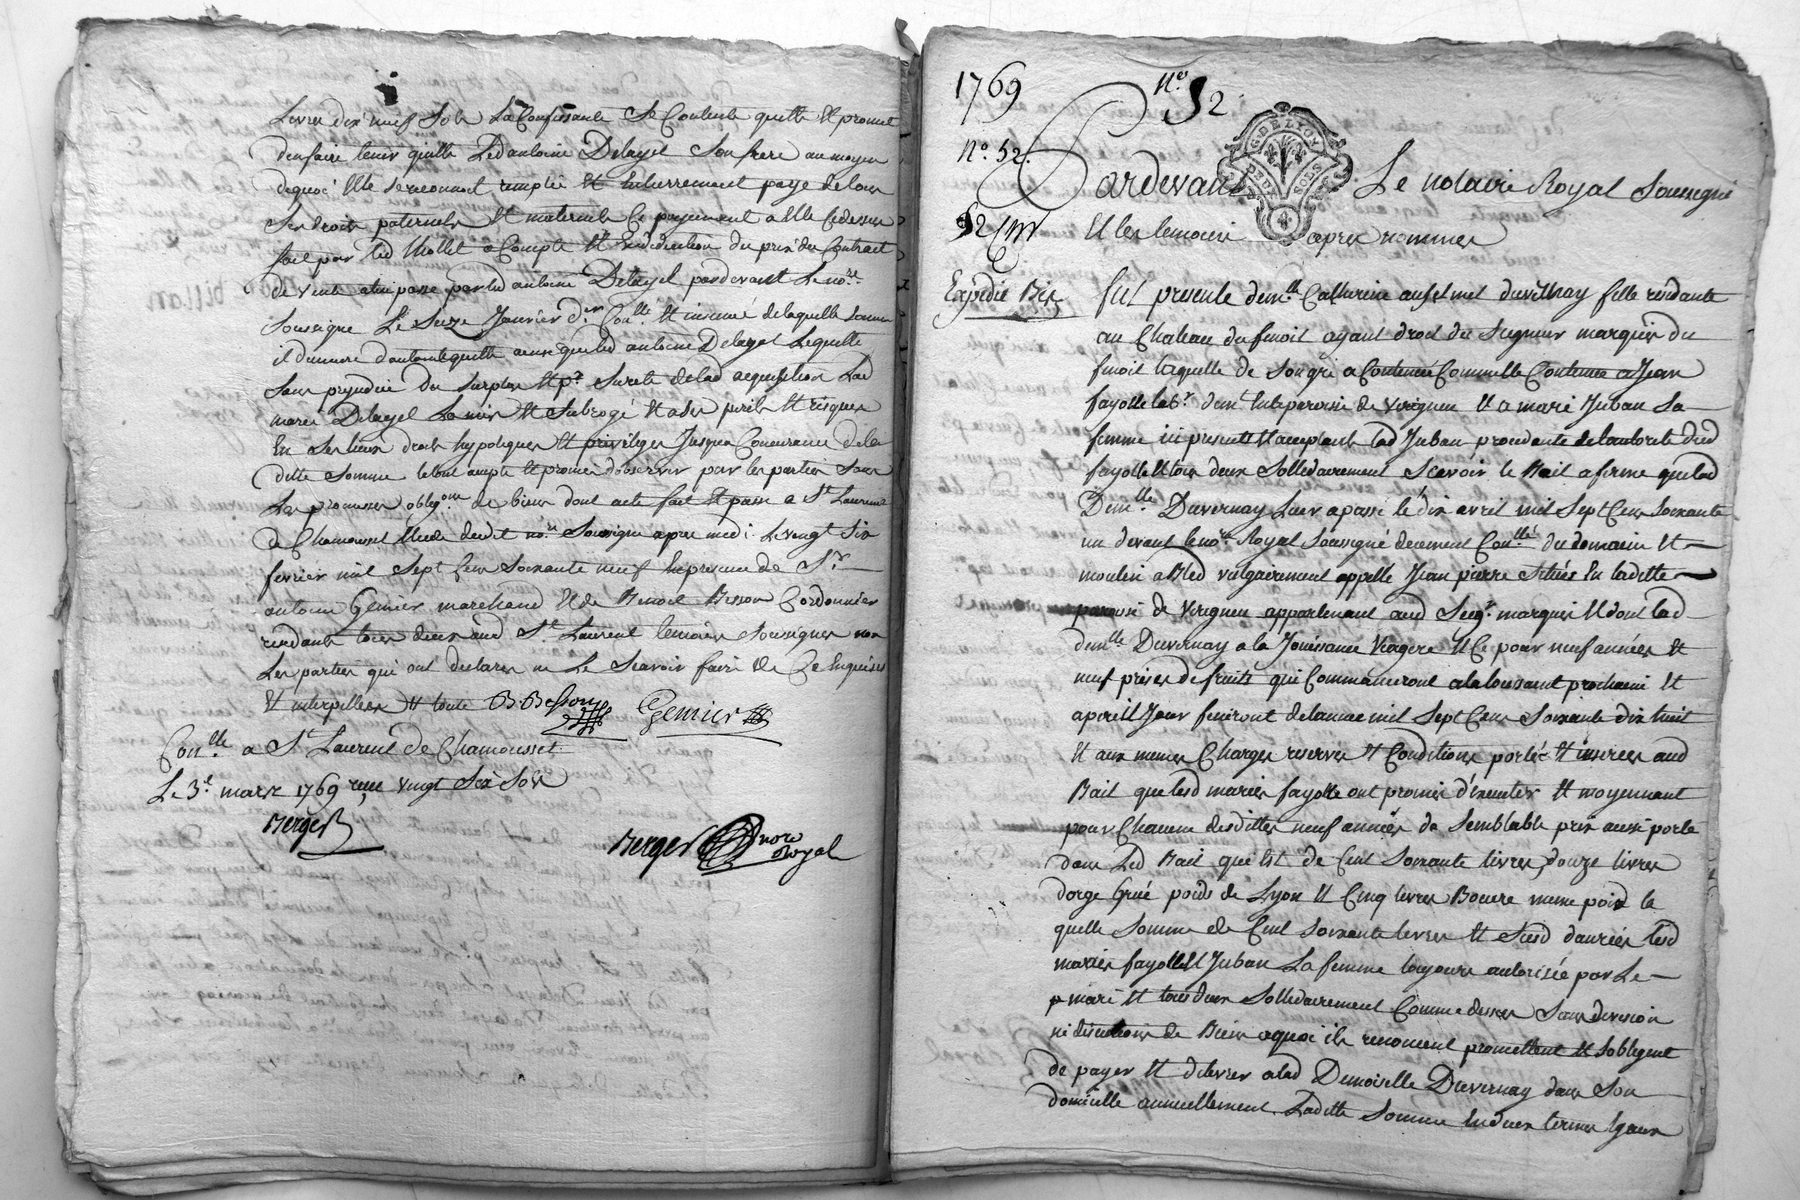 Livres dix neuf Sols La Confessante Se Contente quitte Et promet
den faire tenir quitte Led antoine Delayel Son frere au moyen
dequoi Elle se reconnoit remplie Et Entierrement payé de tous
Ses droits paternels Et maternels Ce payement a Elle Cy dessus
fait par led Mollet a Compte Et En deduction du prix du Contract
de vente a lui passé par led antoine Delayel pardevant Le no.re
Soussigné Le Seize Janvier d.er Con.llé Et insinué de laquelle Somme
il demeure dautant quitte ainsi que led antoine Delayel Lequelle
Sans prejudice du Surplus Et p.r Sureté de lad acquisition Lad
marie Delayel La mis Et Subrogé Et a Ses perils Et risques
En Ses lieux droits hypoteques Et privileges Jusqua Concurrance de la
ditte Somme le tout accepté Et promis dobserver par les parties Sous
Les promesses oblig.ons de biens dont acte fait Et passé a S.t Laurent
de Chamousset Etude dudit no.re Soussigné apres medi Le vingt Six
fevrier mil Sept Cens Soixante neuf En presence de S.r
antoine Genier marchand Et de Benoit Besson Cordonnier
residants tous deux aud S.t Laurent temoins Soussignes non
Les parties qui ont declares ne Le Scavoir faire de Ce Enquises
Et interpellées Et toute B. Besson Genier
Con.llé a S.t Laurent de Chamousset
Le 3.e mars 1769 reçu vingt Six Sols
Berger
Berger nore Royal
1769
N.o 52
N.o 52.
52
G. DE LYON DEUX SOLS
Pardevant Le notaire Royal Soussigné
Et les temoins apres nommés
Expedié Bis
fut presente dem.lle Catherine duvernay fille residante
au Chateau du finoit ayant droit du Seigneur marquis du
finoit laquelle de Son gré a Continué Comme Elle Continue a Jean
fayolle lab.r dem.t En la paroisse de virigneu Et a marie Juban Sa
femme ici presents Et acceptants lad Juban procedante de lautorité dud
fayolle Et tous deux Sollidairement Scavoir le Bail a ferme que lad
Dem.lle Duvernay Leur a passé le dix avril mil Sept Cens Soixante
un devant le no.re Royal Soussigné deuement Con.llé du domaine Et
moulin a Bled vulgairement appellé Jean pierre Situés En laditte
paroisse de virigneu appartenant aud Seig.r marquis Et dont lad
dem.lle Duvernay a la Jouissance Viagere Et Ce pour neuf années Et
neuf prises de fruits qui Commanceront a la toussaint prochaine Et
a pareil Jour finiront de lannée mil Sept Cens Soixante dix huit
Et aux memes Charges reserves Et Conditions portés Et inserées aud
Bail que lesd mariés fayolle ont promis d'executer Et moyennant
pour Chacune desdittes neuf années de Semblable prix aussi porté
dans Led Bail qui Est de Cent Soixante livres, douze livres
dorge Grué poids de Lyon Et Cinq livres Beurre meme poid la
quelle Somme de Cent Soixante livres Et Susd danrées lesd
mariés fayolle Et Juban La femme toujours autorisée par Le
mari Et tous deux Sollidairement Comme dessus Sans division
ni discutions de Biens a quoi ils renoncent promettent Et Sobligent
de payer Et delivrer a lad Demoiselle Duvernay dans Son
domicille annuellement Laditte Somme En deux termes Egaux